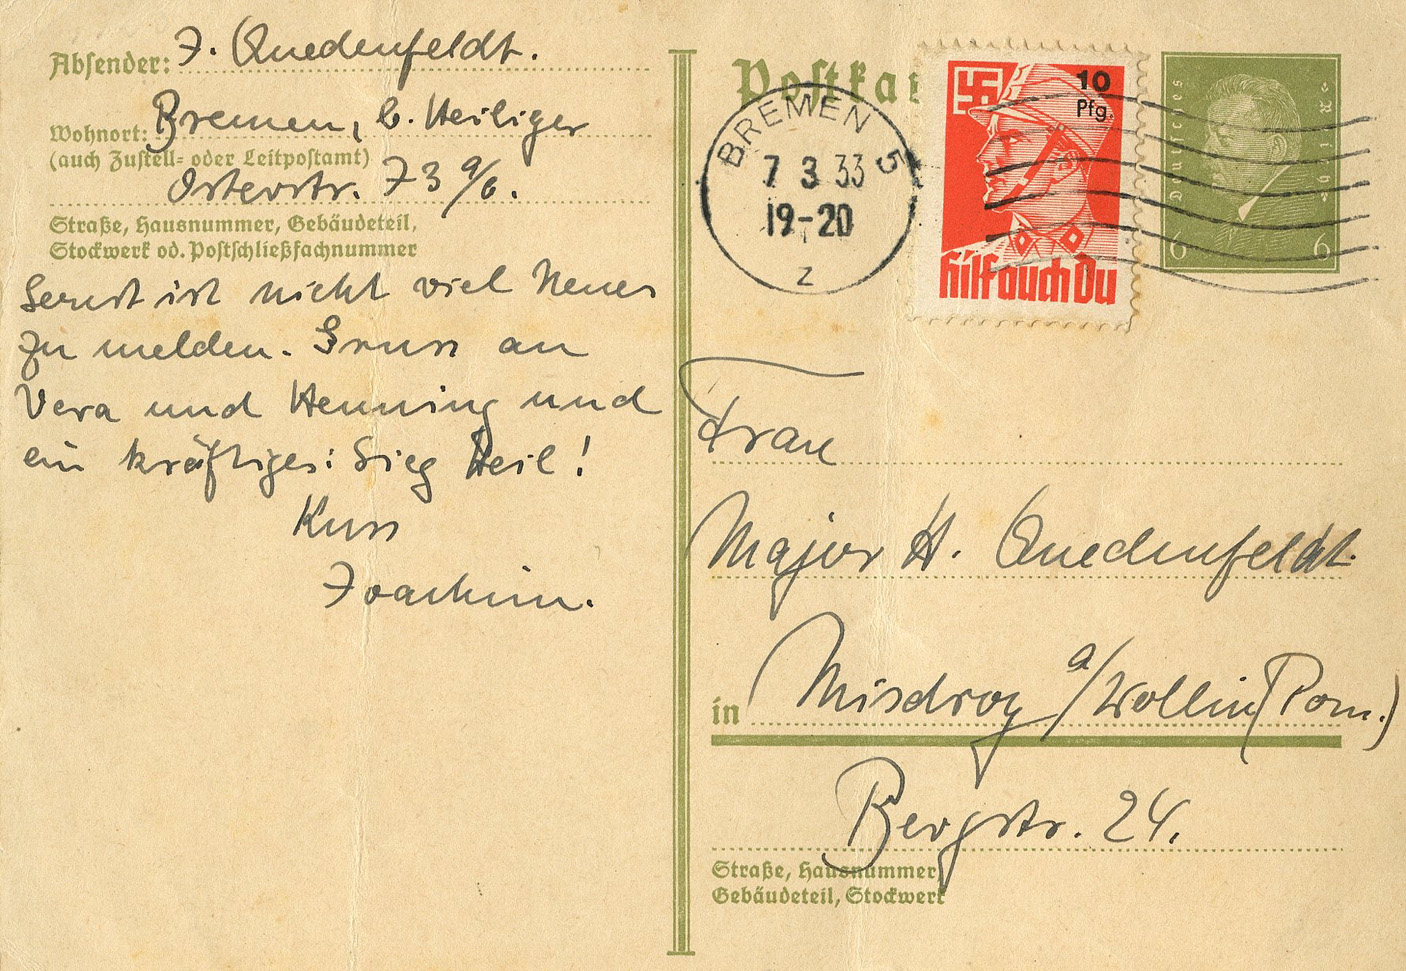 Absender: J. Quedenfeldt.
Wohnort: Bremen, b. Heiliger
(auch Zustell- oder Leitpostamt)
Osterstr. 73 a/b.
Straße, Hausnummer, Gebäudeteil,
Stockwerk od. Postschließfachnummer
Sernst ist nicht viel Neues
zu melden. Gruss an
Vera und Henning und
ein kräftiges: Sieg Heil!
Kuss
Joachim.
Postkar
BREMEN 5
7 3 33
19-20
z
10
Pfg.
hilf auch Du
Deutsches
Reich
6 6
Frau
Major H. Quedenfeldt.
in Misdroy a/Wollin (Pom.)
Bergstr. 24.
Straße, Hausnummer,
Gebäudeteil, Stockwerk